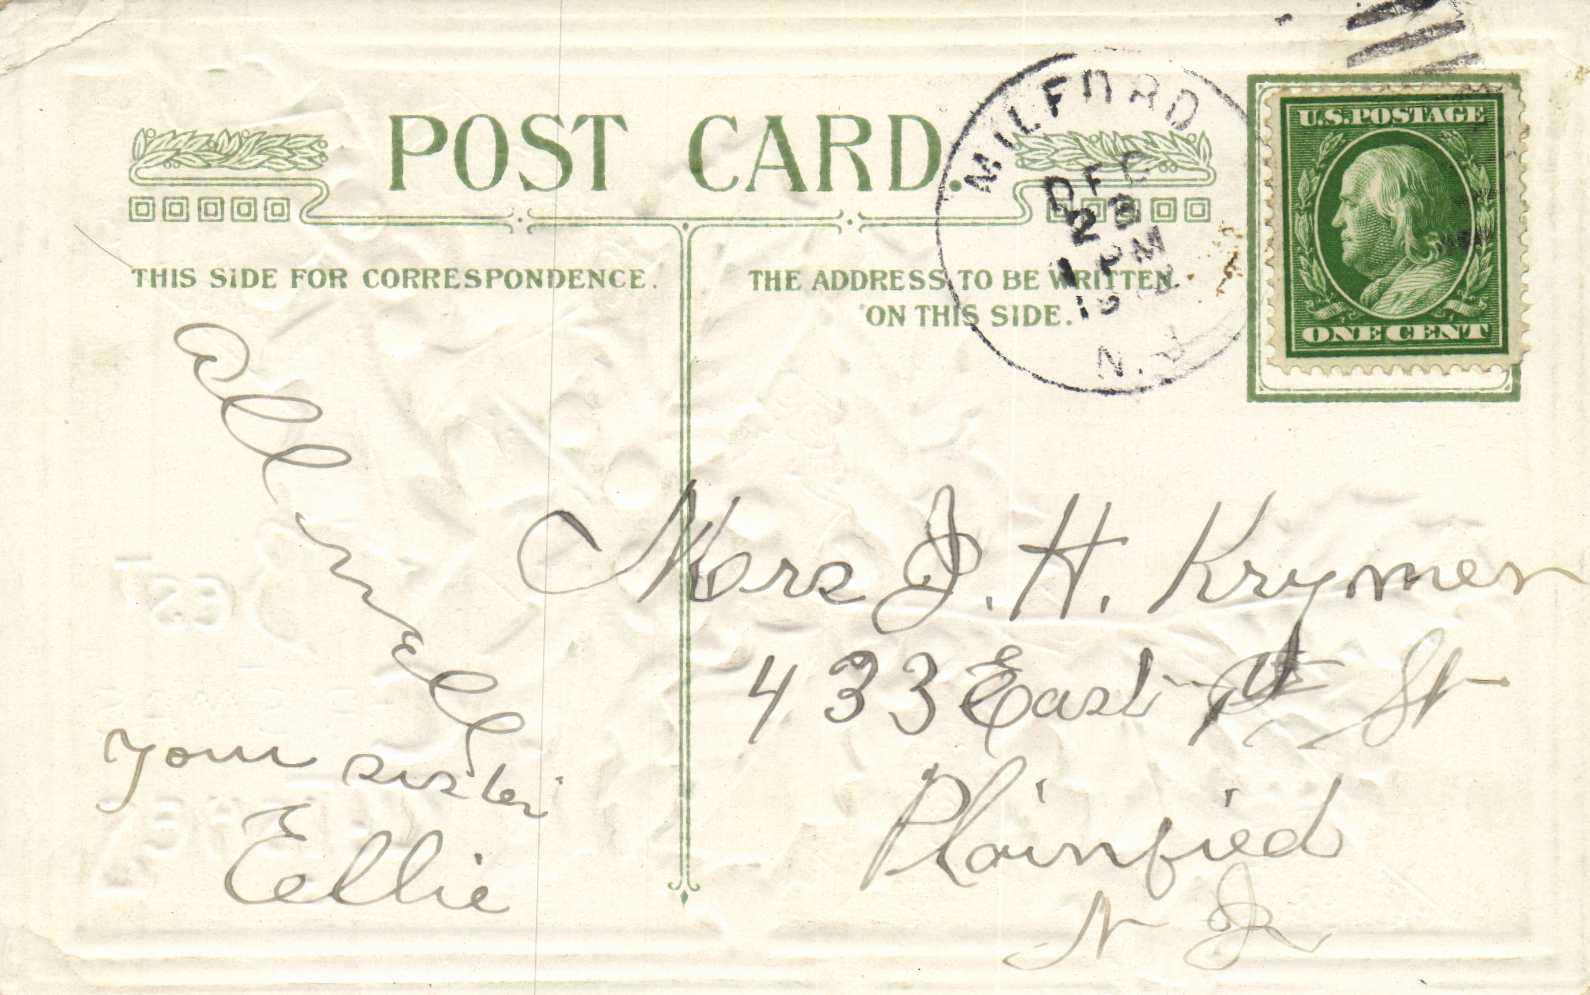 POST CARD.
THIS SIDE FOR CORRESPONDENCE.
THE ADDRESS TO BE WRITTEN
ON THIS SIDE.
MILFORD
DEC
1 PM
N.
U.S. POSTAGE
ONE CENT
all well
your sister
Ellie
Mrs J. H. Krymer
433 East St
Plainfied
N J